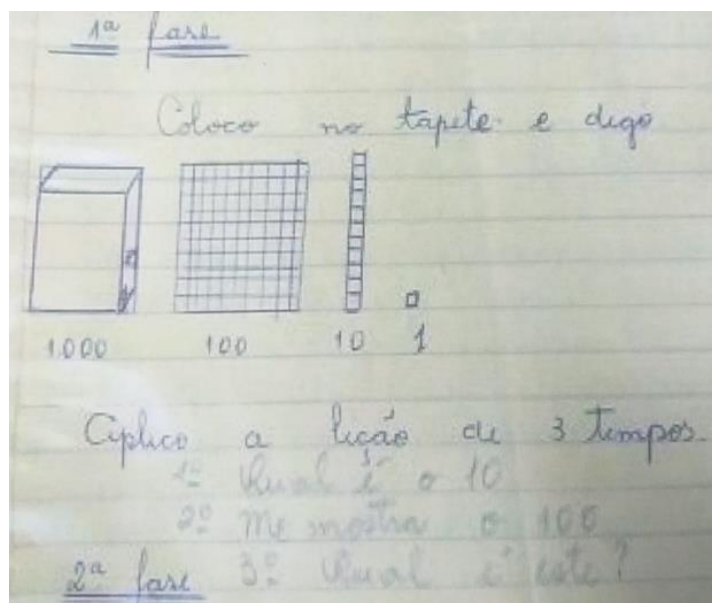 1ª fase
Coloco no tapete e digo
1.000 100 10 1
Aplico a lição de 3 tempos.
1º Qual é o 10
2º Me mostra o 100
3º Qual é este?
2ª fase